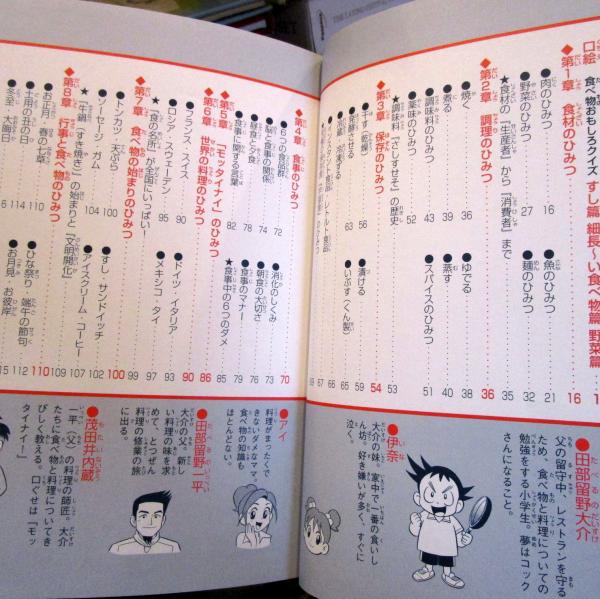 口絵 食べ物おもしろクイズ すし篇 細長〜い食べ物篇 野菜篇
◆第1章 食材のひみつ 16
●肉のひみつ 16
●魚のひみつ 21
●野菜のひみつ 27
●麺のひみつ 32
★食材の「生産者」から「消費者」まで 35
◆第2章 調理のひみつ 36
●焼く 36
●ゆでる 38
●煮る 39
●蒸す 40
●調味料のひみつ 43
●スパイスのひみつ 51
●薬味のひみつ 52
★調味料「さしすせそ」の歴史 53
◆第3章 保存のひみつ 54
●干す(乾燥) 56
●漬ける 59
●発酵させる 63
●いぶす(くん製) 65
◆第4章 食事のひみつ 70
●6つの食品群 72
●消化のしくみ 73
●脳と食事の関係 74
●朝食の大切さ 76
●昼食と夕食 78
●食事のマナー 79
●食事に関する言葉 82
★食事中の6つのダメ 85
◆第5章 「モッタイナイ」のひみつ 86
◆第6章 世界の料理のひみつ 90
●フランス・スイス 90
●ドイツ・イタリア 93
●ロシア・スウェーデン 95
●メキシコ・タイ 97
★「食の名所」が全国にいっぱい! 99
◆第7章 食べ物の始まりのひみつ 100
●トンカツ・天ぷら 100
●すし・サンドイッチ 102
●ソーセージ・ガム 104
●アイスクリーム・コーヒー 107
★「牛鍋(すき焼き)」の始まりと「文明開化」 109
◆第8章 行事と食べ物のひみつ 110
●お正月・春の七草 110
●ひな祭り・端午の節句 112
●土用の丑の日 114
●お月見・お彼岸
●冬至・大晦日
●田部留野大介
父の留守中、レストランを守るため、食べ物と料理についての勉強をする小学生。夢はコックさんになること。
●伊奈
大介の妹。家中で一番の食いしん坊。好き嫌いが多く、すぐに泣
●アイ
料理がまったくできないダメなママ。食べ物の知識もほとんどない。
●田部留野一平
大介の父。新しい料理の味を求めて、とつぜん料理の修業の旅に出る。
●茂田井内蔵
一平(父)の料理の師匠。大介たちに食べ物と料理についてきびしく教える。口ぐせは「モッタイナイ!」